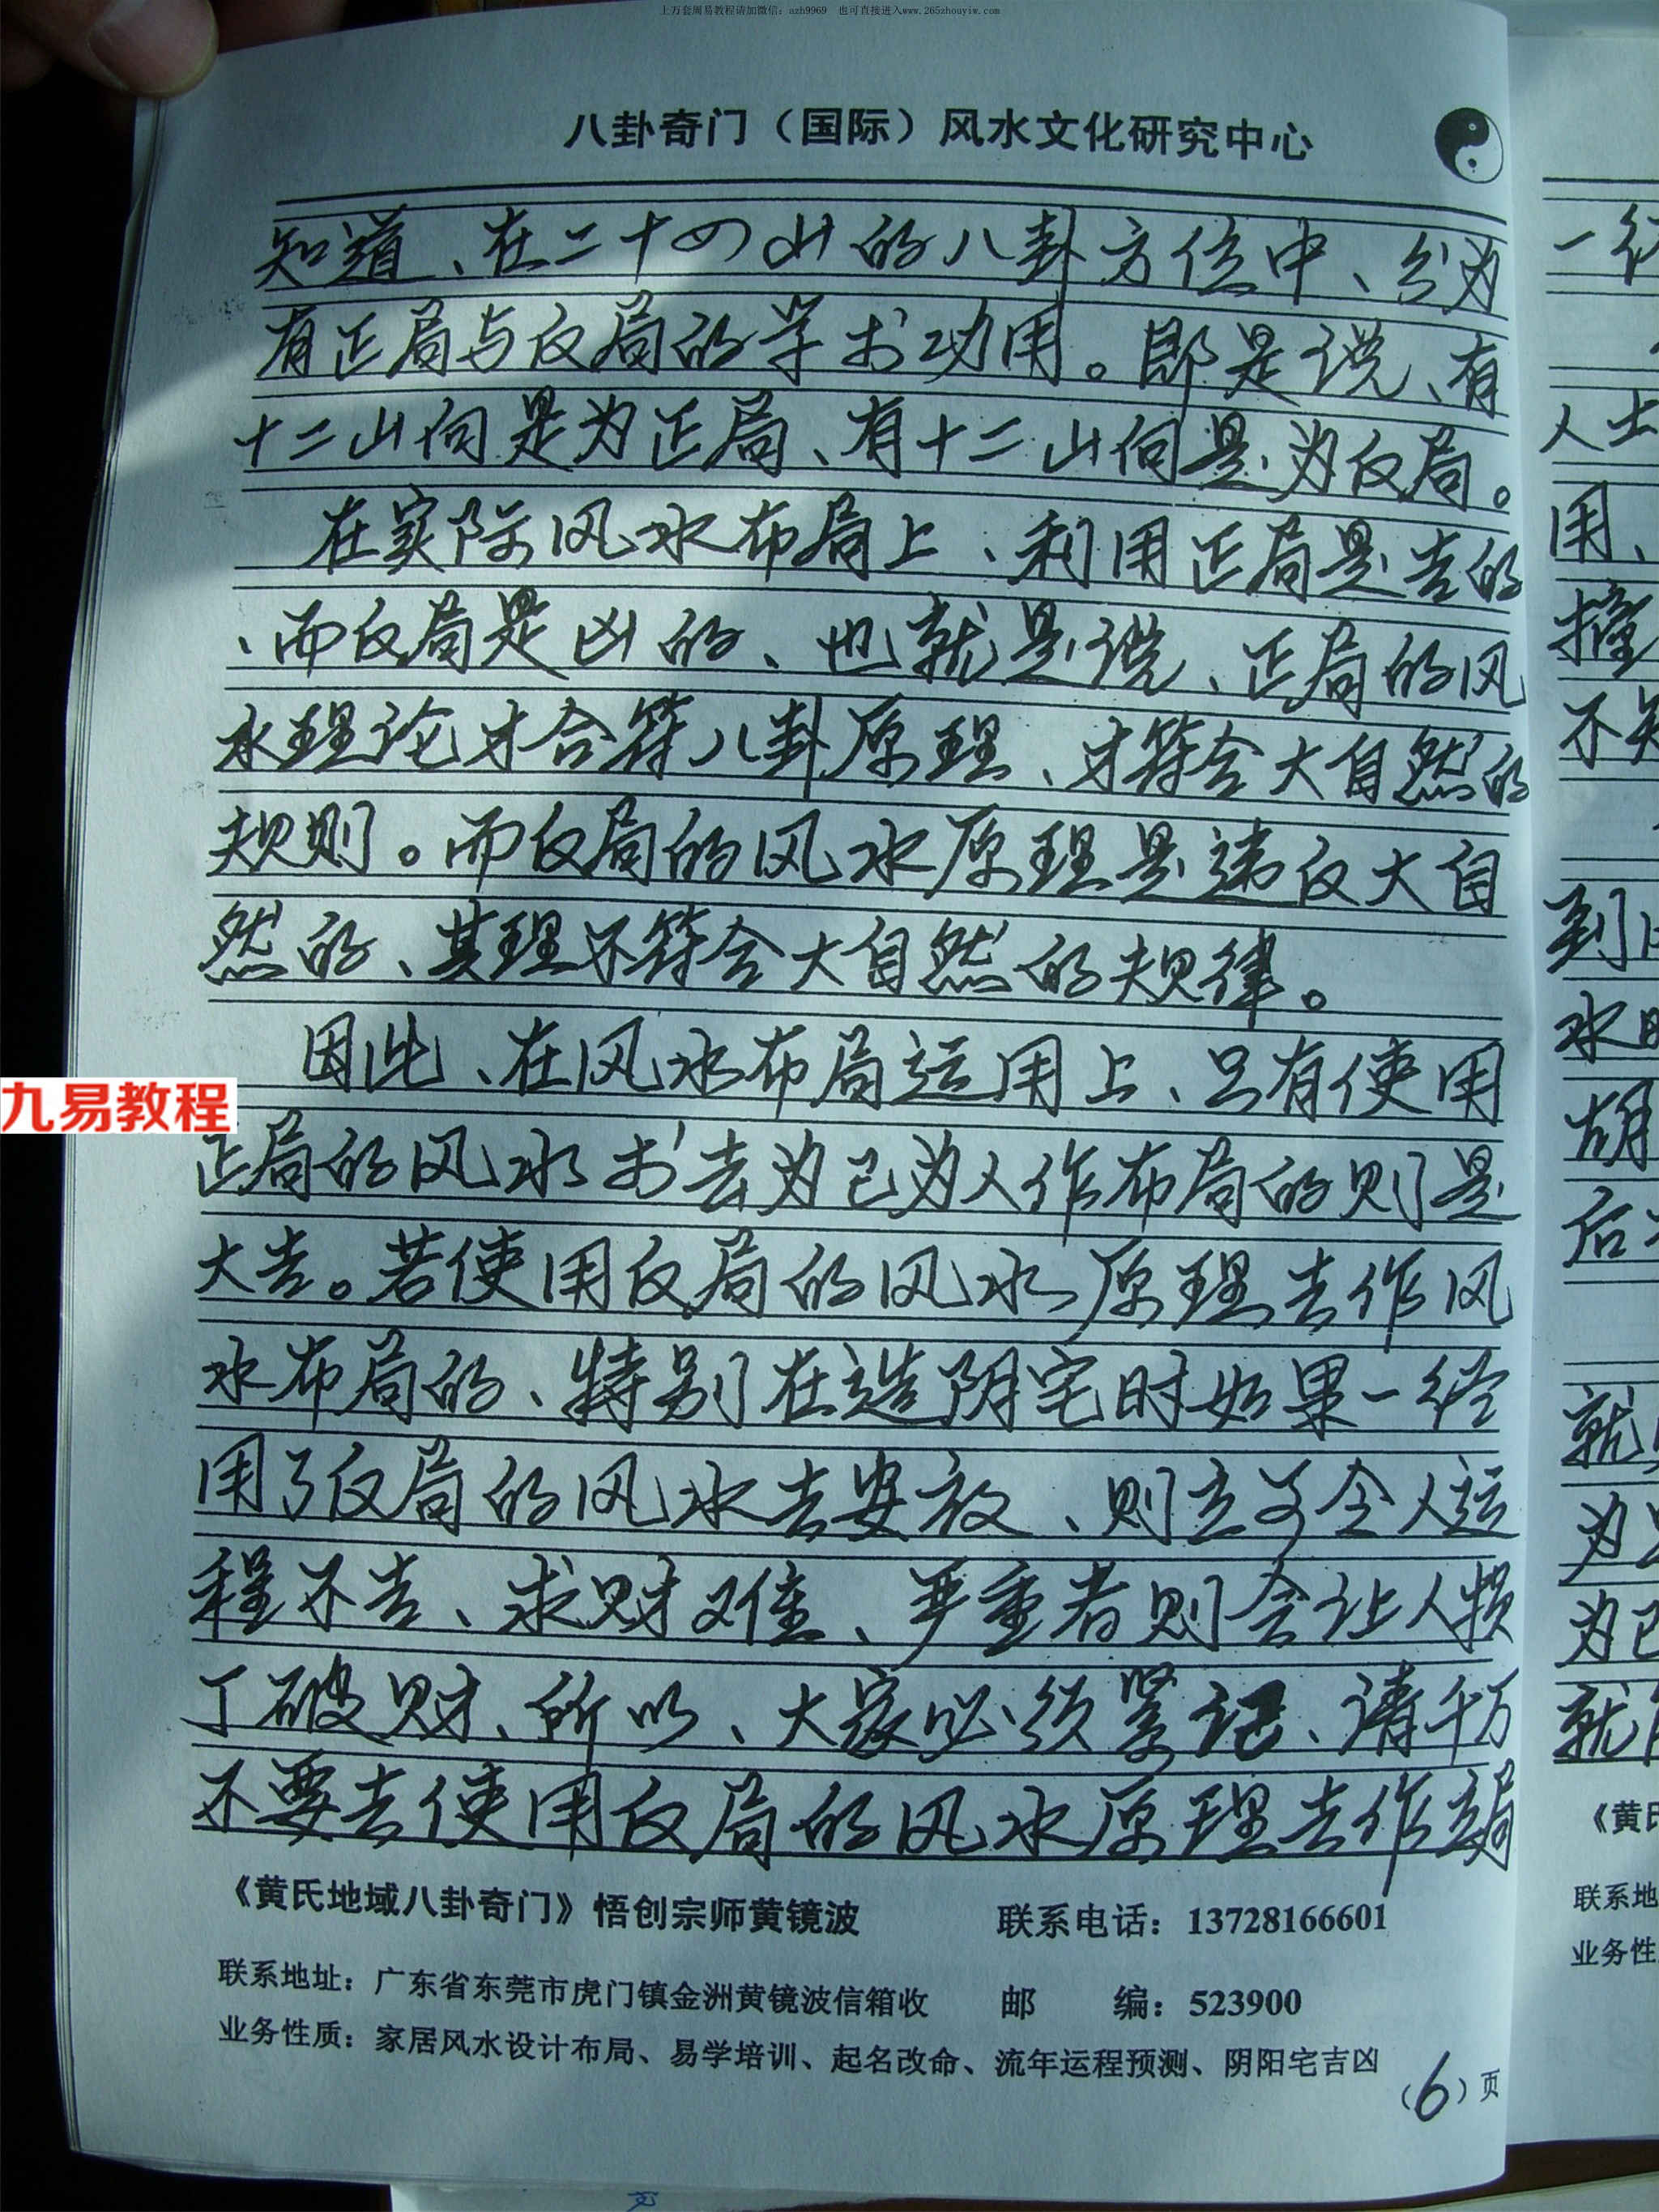 上万套周易教程请加微信：azh9969 也可直接进入www.265zhouyiw.com
八卦奇门（国际）风水文化研究中心
知道、在二十四山的八卦方位中、分为
有正局与反局的学术功用。即是说、有
十二山向是为正局、有十二山向是为反局。
在实际风水布局上、利用正局是吉的
、而反局是凶的、也就是说、正局的风
水理论才合符八卦原理、才符合大自然的
规则。而反局的风水原理是违反大自
然的、其理不符合大自然的规律。
因此、在风水布局运用上、只有使用
九易教程
正局的风水术去为己为人作布局的则是
大吉。若使用反局的风水原理去作风
水布局的、特别在造阴宅时如果一经
用了反局的风水去安放、则立可令人运
程不吉、求财又难、严重者则会让人损
丁破财、所以、大家必须紧记、请千万
不要去使用反局的风水原理去作布局
《黄氏地域八卦奇门》悟创宗师黄镜波 联系电话：13728166601
联系地址：广东省东莞市虎门镇金洲黄镜波信箱收 邮 编：523900
业务性质：家居风水设计布局、易学培训、起名改命、流年运程预测、阴阳宅吉凶
（6）页
一
人士
用、
撞
不知
到
水
胡
后
就
为
为己
就
《黄氏
联系地
业务性